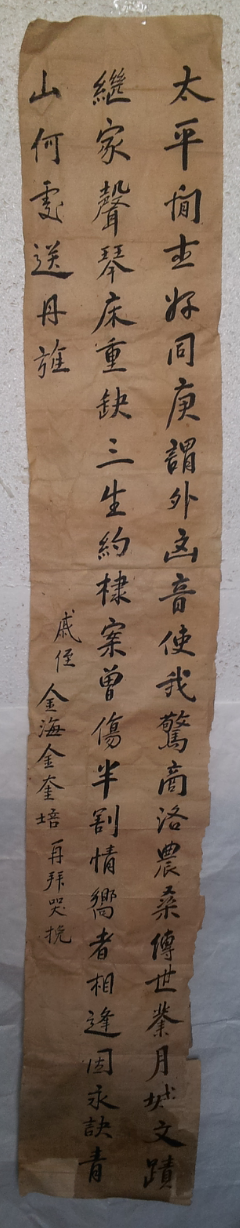 太平閒主好同庚謂外凶音使我驚商洛農桑傳世業月城文蹟
繼家聲琴床重缺三生約棣案曾傷半割情嚮者相逢因永訣青
山何處送丹旌
戚侄金海金奎培再拜哭挽